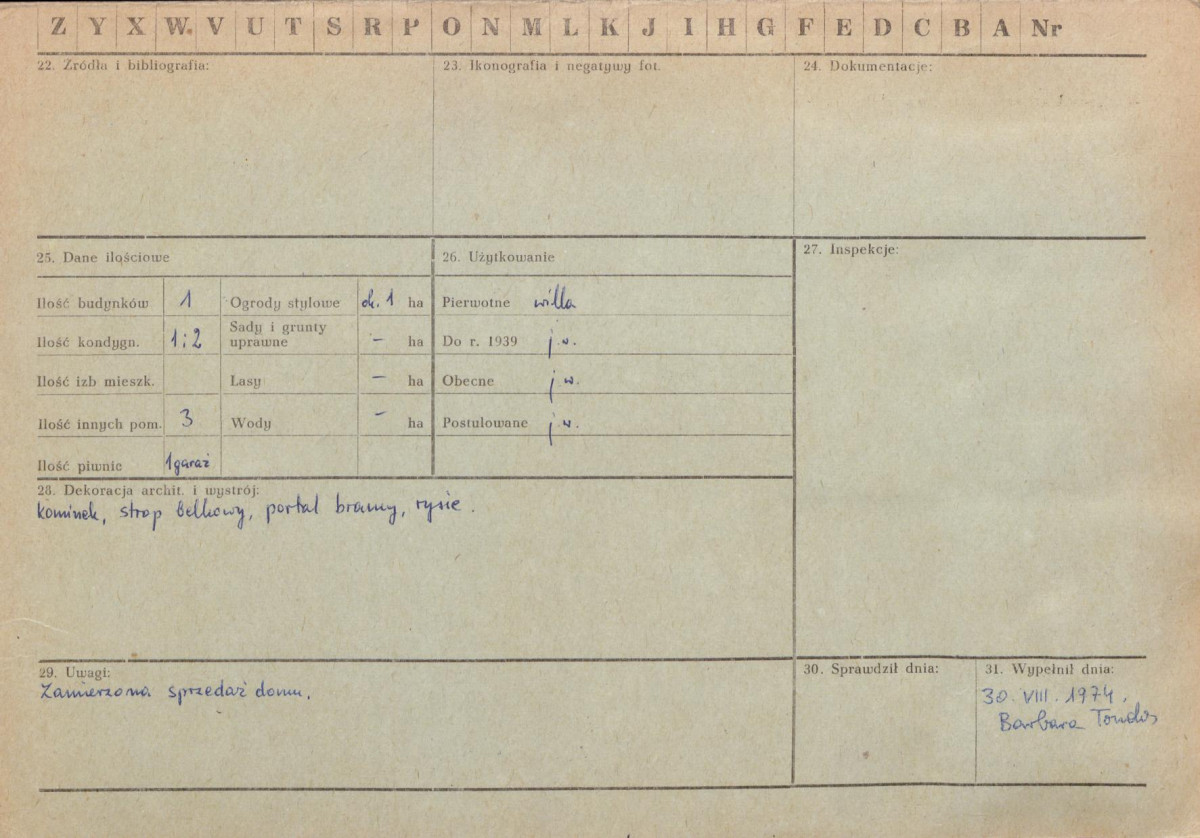 Z Y X W. V U T S R P O N M L K J I H G F E D C B A Nr
22. Źródła i bibliografia:
23. Ikonografia i negatywy fot.
24. Dokumentacje:
25. Dane ilościowe
Ilość budynków 1 Ogrody stylowe ok. 1 ha
Ilość kondygn. 1; 2 Sady i grunty uprawne – ha
Ilość izb mieszk. Lasy – ha
Ilość innych pom. 3 Wody – ha
Ilość piwnic 1 garaż
26. Użytkowanie
Pierwotne willa
Do r. 1939 j.w.
Obecne j w.
Postulowane j.w.
27. Inspekcje:
28. Dekoracja archit. i wystrój:
kominek, strop belkowy, portal bramy, rysie.
29. Uwagi:
Zamierzona sprzedaż domu.
30. Sprawdził dnia:
31. Wypełnił dnia:
30. VIII. 1974.
Barbara Tondos